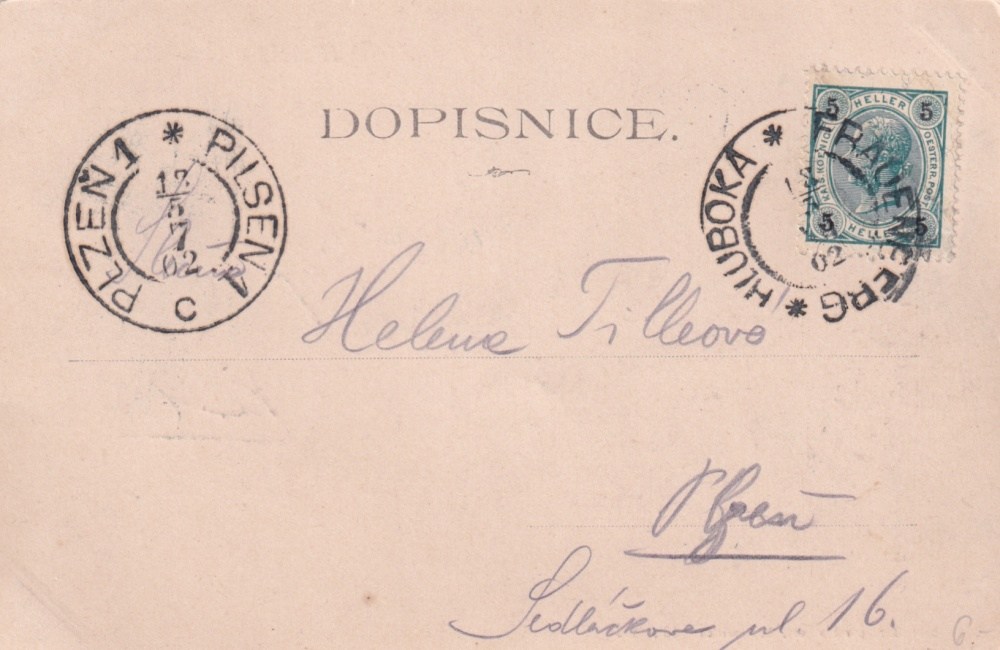 DOPISNICE.
PLZEŇ 1 * PILSEN 1
12
5
7
02
C
HLUBOKA * FRAUENBERG *
02
5 HELLER 5
KAIS. KOENIGL. OESTERR. POST
5 HELLER 5
Slečna
Helena Tilleova
Plzeň
Sedláčkova ul. 16.
6.-